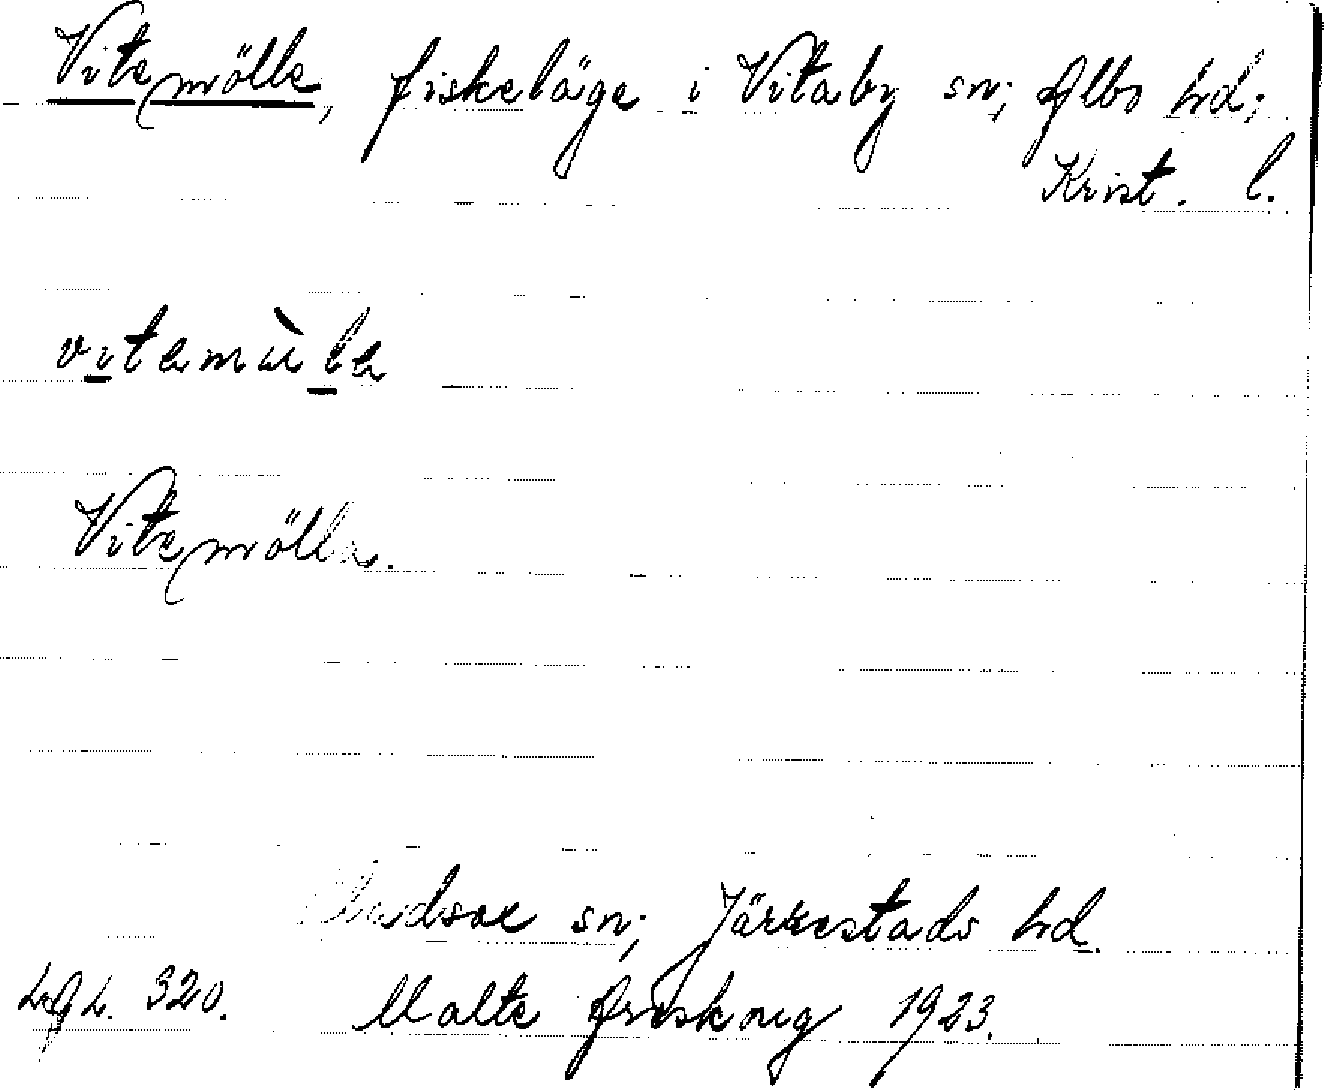 Vitemölle, fiskeläge i Vitaby sn; Albo hd;
Krist. l.
vitemùle
Vitemölle.
sn; Järrestads hd.
320. Malte 1923.